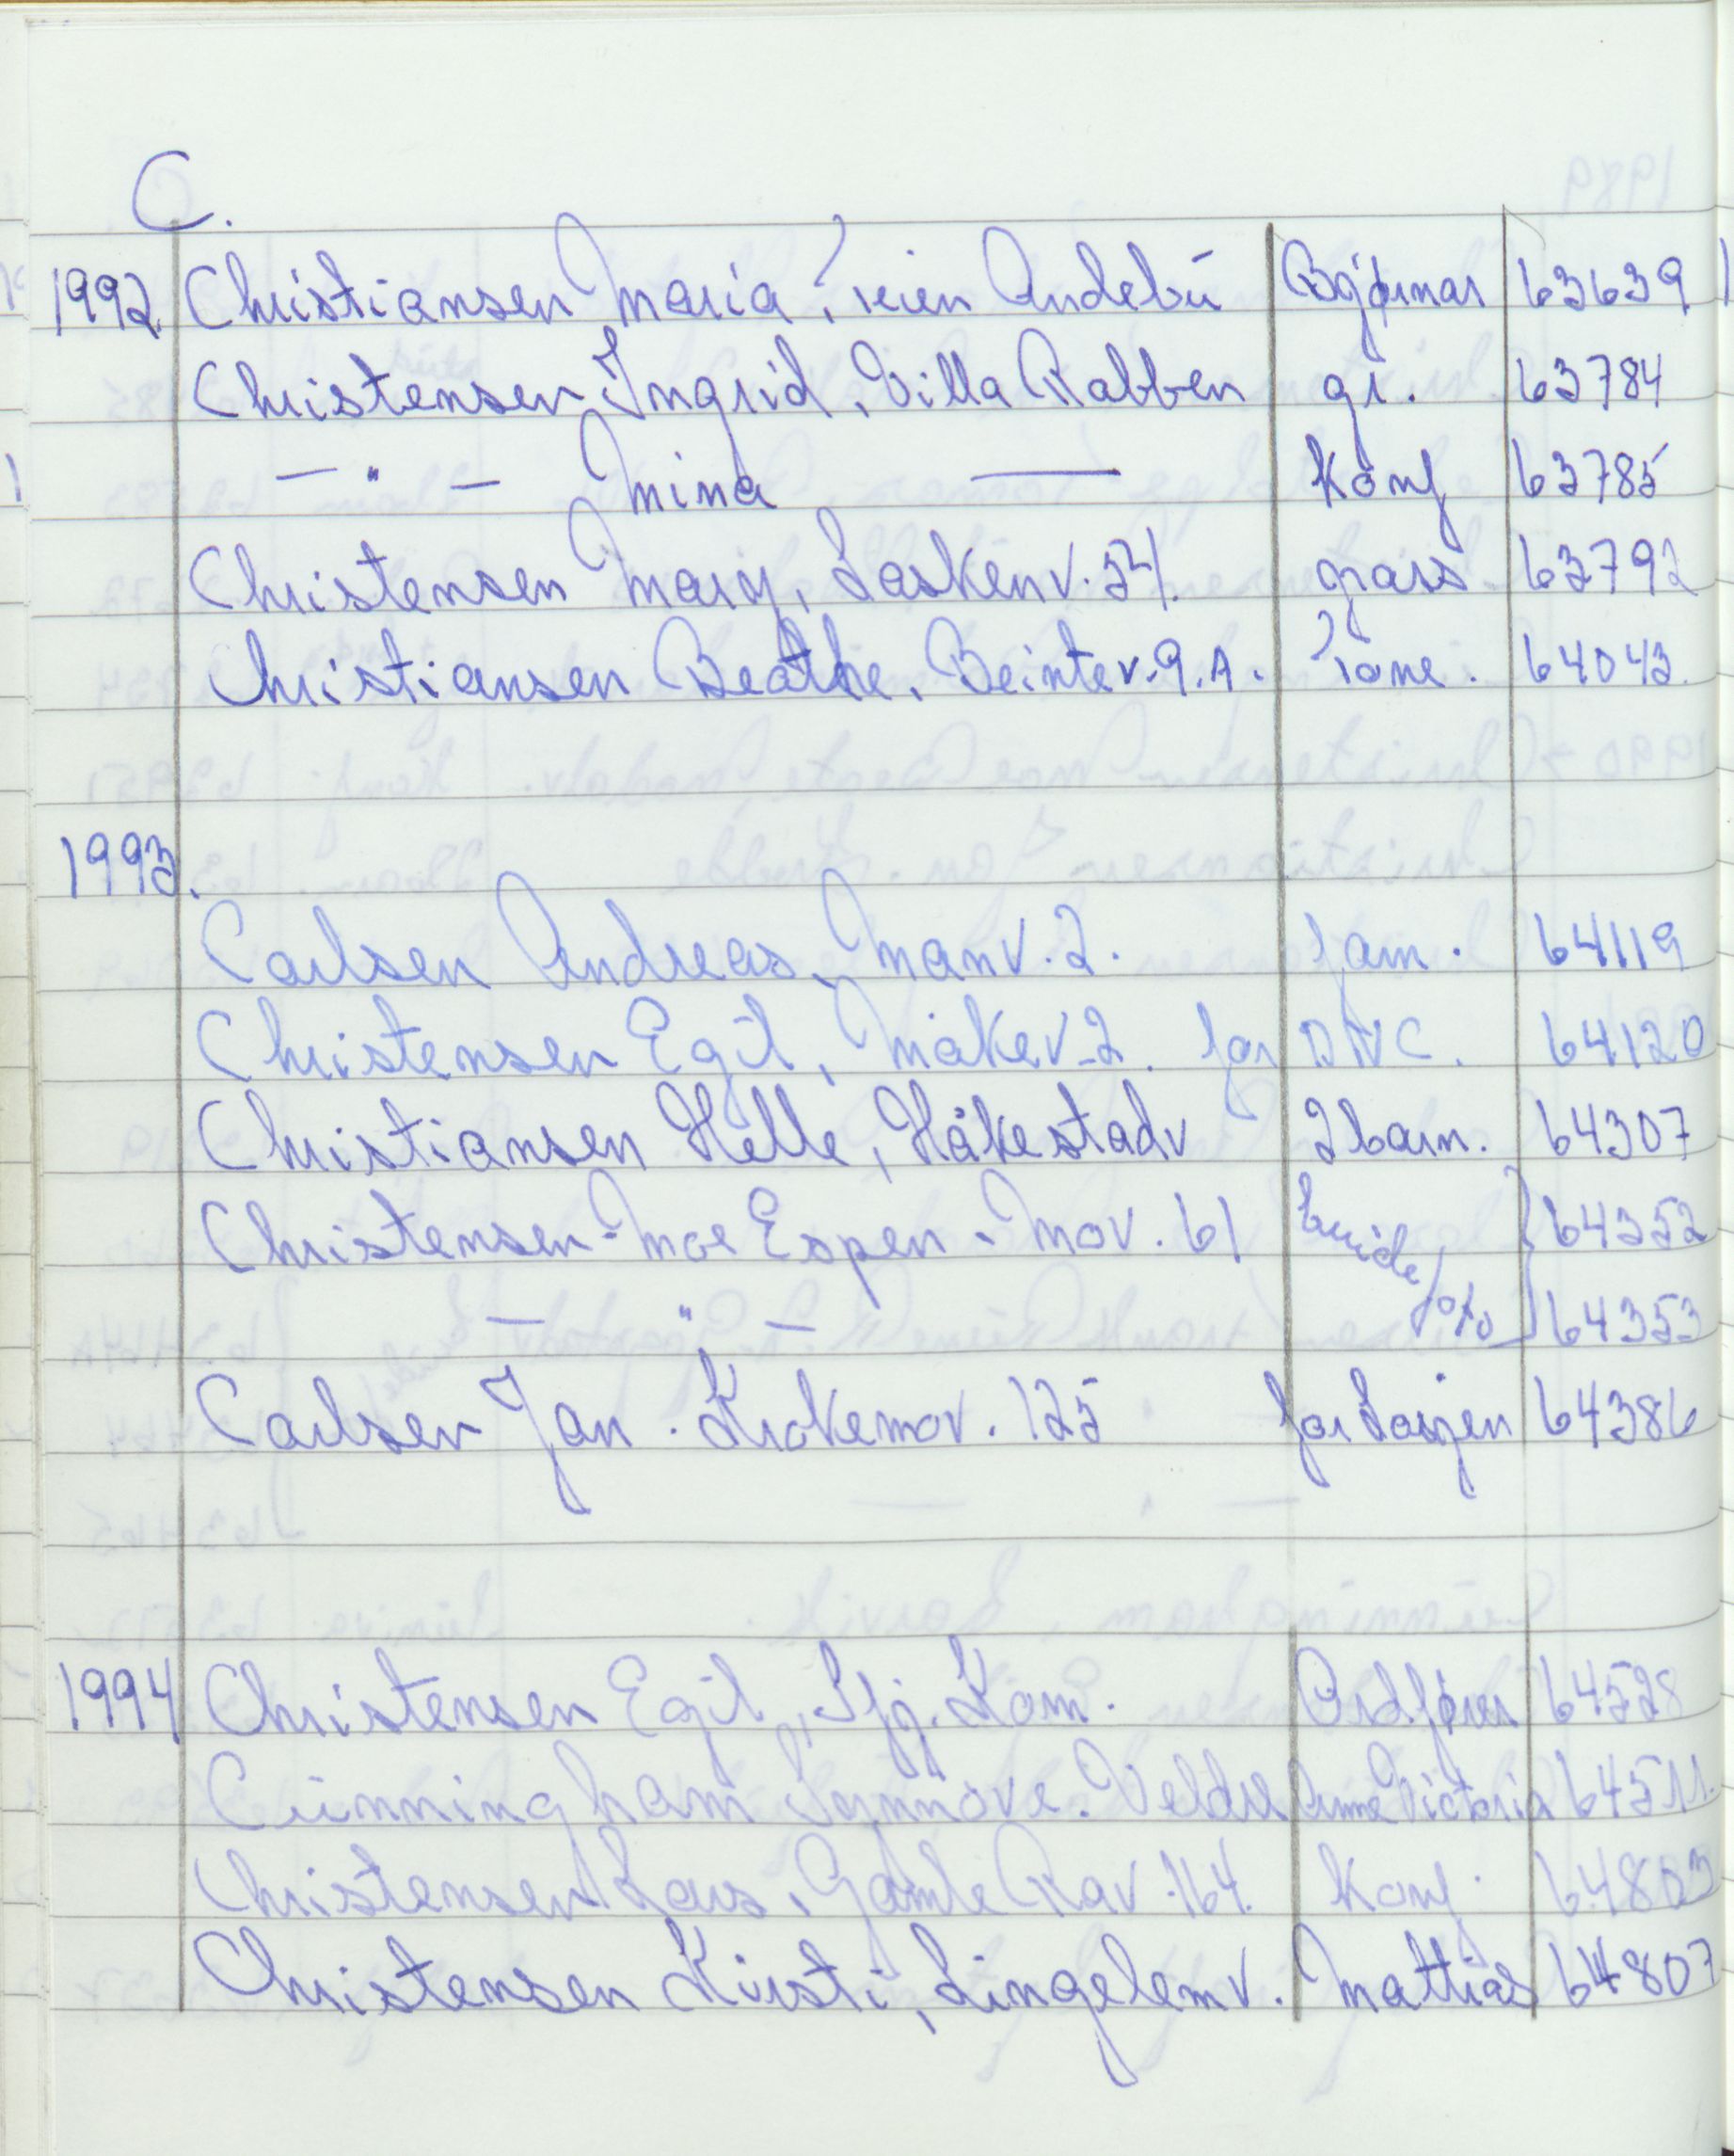 C.
1992. Christiansen Maria, veien Andebu Bjørnar 63639
Christensen Ingrid, Villa Rabben gr. 63784
— " — Mina —— Konf 63785
Christensen Mary, Laskenv. 54. grass 63792
Christiansen Beathe, Beintev. 9.A. Tone. 64043.
1993.
Carlsen Andreas, Nanv. 2. fam. 64119
Christensen Egil, Måkev. 2. for DNC. 64120
Christiansen Helle, Håkestadv 2 barn. 64307
Christensen-Moe Espen. Mov. 61 brude/ 64352
— " — par 64353
Carlsen Jan. Krokemov. 125 for Lasjen 64386
1994 Christensen Egil, Sfj. Kom. Ordfører 64528
Cunningham Synnøve. Veldre Anne Victoria 64511.
Christensen Lars, Gamle Rav. 164. Konf. 64803
Christensen Kirsti, Lingelemv. Mattias 64807